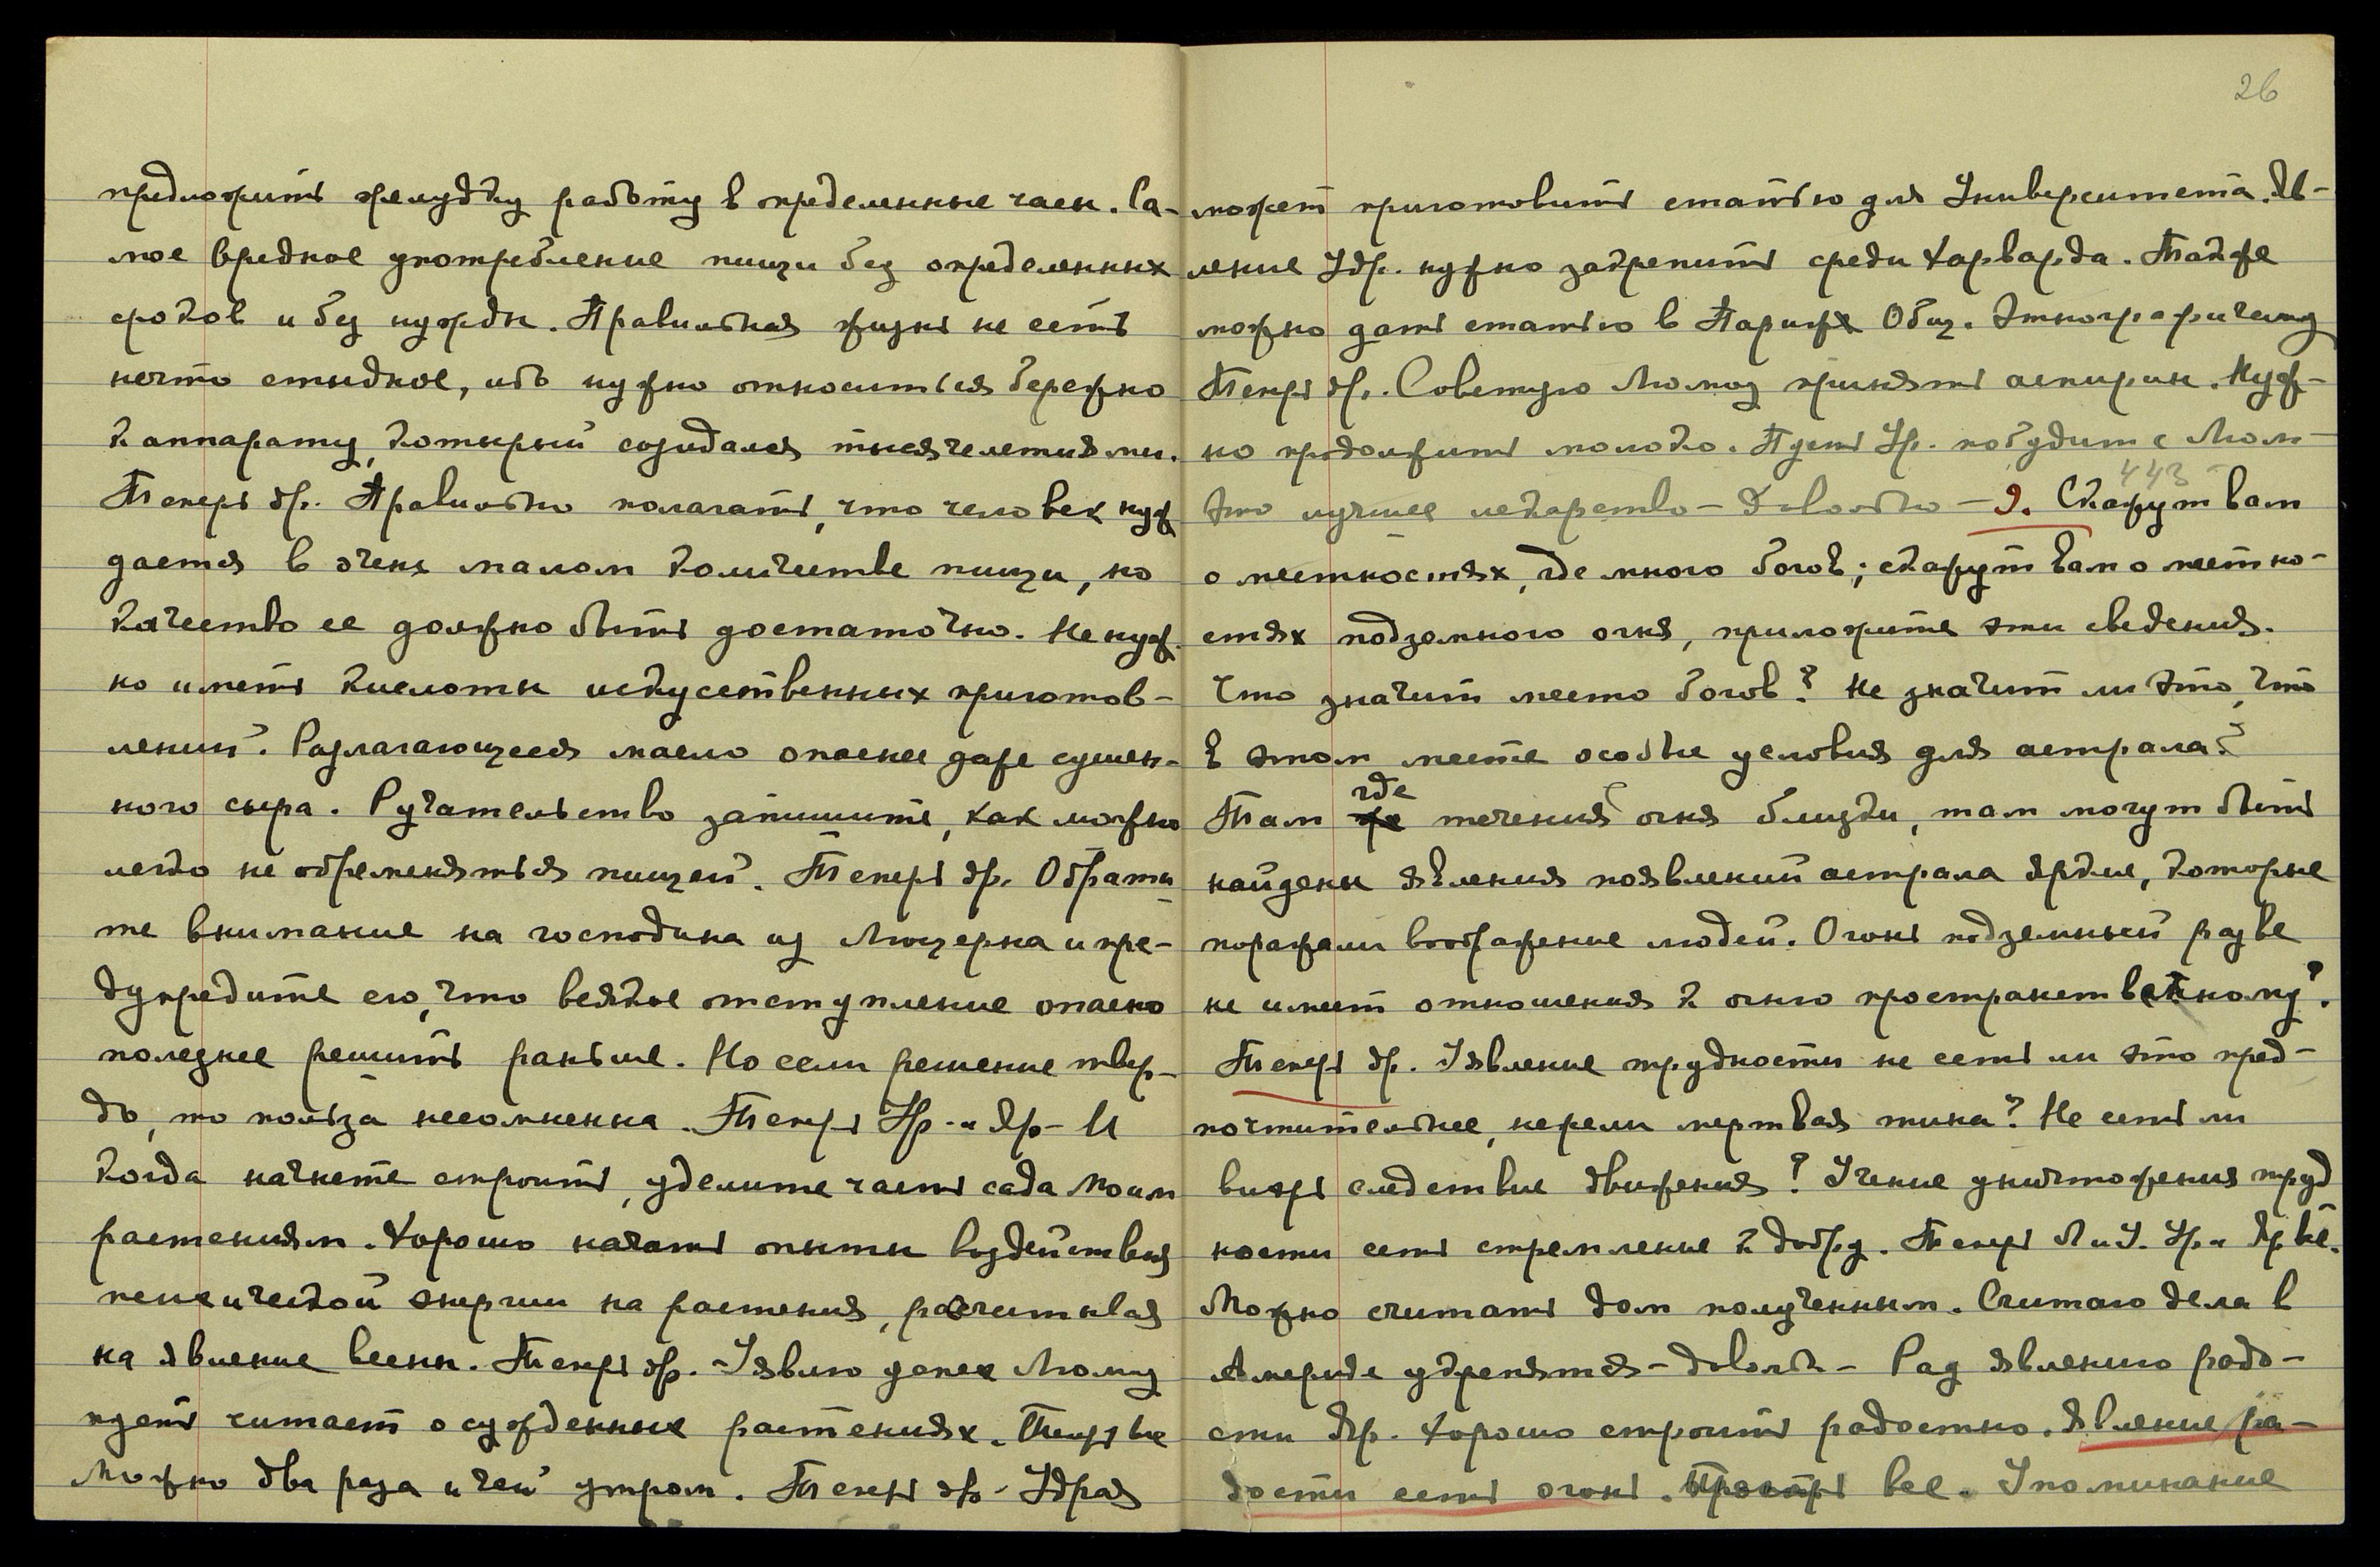 предложить желудку работу в определенные часы. Са-
мое вредное употребление пищи без определенных
сроков и без нужды. Правильная жизнь не есть
нечто стыдное, ибо нужно относиться бережно
к аппарату, который созидался тысячелетиями.
Теперь др. Правильно полагать, что человек нуж
дается в очень малом количестве пищи, но
качество ее должно быть достаточно. Не нуж-
но иметь кислоты искусственных приготов-
лений. Разлагающееся масло опаснее даже сушен-
ного сыра. Ручательство запишите, как можно
легко не обременяться пищей. Теперь др. Обрати-
те внимание на господина из Люцерна и пре-
дупредите его, что всякое отступление опасно
полезнее решить раньше. Но если решение твер-
до, то польза несомненна. Теперь Ур. и Др - И
когда начнете строить, уделите часть сада моим
растениям. Хорошо начать опыты воздействия
психической энергии на растения, расчитывая
на явление весны. Теперь др. - Уявлю успех Люмоу
пусть читает о сужденных растениях. Теперь все
Можно два раза и чай утром. Теперь др - Удрая
26
может приготовить статью для Университета. Яв-
ление Удр. нужно закрепить среди Харварда. Также
можно дать статью в Париж Общ. Этнографическому
Теперь др. Советую Люмоу принять аспирин. Нуж-
но продолжить молоко. Пусть Ур. побудит с Люм-
это лучшее лекарство - Довольно - 9. Скажут вам
443
о местностях, где много богов; скажут вам о местно-
стях подземного огня, приложите эти сведения.
Что значит место богов? Не значит ли это, что
в этом месте особые условия для астрала?
где
Там течения огня близки, там могут быть
найдены явления появлений астрала яркие, которые
поражали воображение людей. Огонь подземный разве
не имеет отношения к огню пространственному?
Теперь др. Уявление трудности не есть ли это пред-
почтительнее, нежели мертвая тина? Не есть ли
вихрь следствие движения? Учение уничтожения труд
ности есть стремление к добру. Теперь Л и У. Ур. и Яр вё.
Можно считать дом полученным. Считаю дела в
Америке укрепятся - довольно - Рад явлению радо-
сти Яр. Хорошо строить радостно. Явление ра-
дости есть огонь. все. Упоминание